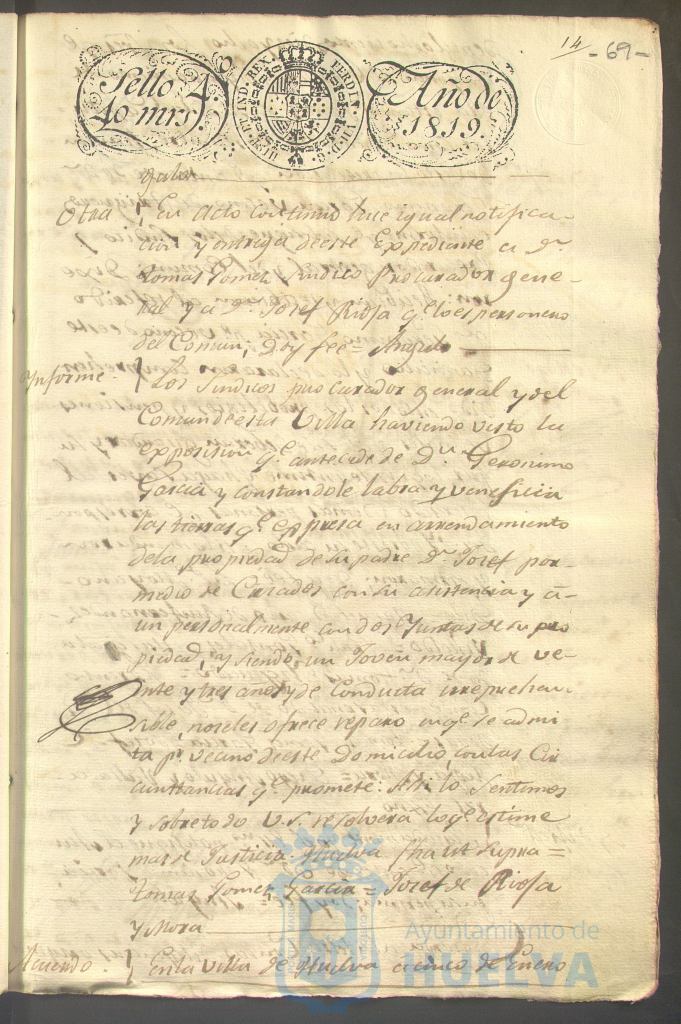 14
-69-
Sello 4.
40 mrs.
HISP. ET IND. REX. FERDIN. VII. D. G.
Año de
1819.
Otra En Acto continuo hice igual notifica-
cion y entrega de este Expediente a Dn.
Tomas Gomez Sindico Procurador gene-
ral y a Dn. Josef Rioja qe. lo es personero
del Comun; Doy fee=
Ynforme. Los Sindicos procurador general y del
Comun de esta Villa haviendo visto la
exposision qe. antecede de Dn. Geronimo
Garcia y constandole labra y veneficia
las tierras qe. expresa en arrendamiento
de la propiedad de su padre Dn. Josef por
medio de Criados con su asistencia y a-
un personalmente con dos Yuntas de su pro
piedad, y siendo un Joven mayor de ve-
inte y tres años y de Conducta irreprehen-
sible, no seles ofrece reparo en qe. se admi
ta pr. vecino de este Domicilio, con las Cir
cunstancias qe. promete: Asi lo sentimos
y sobre todo V.S. resolvera lo qe. estime
mas de Justicia. Huelva fha ut supra=
Tomas Gomez Garcia= Josef de Rioja
y Mora
Acuerdo. En la Villa de Huelva a cinco de Enero
Ayuntamiento de
HUELVA